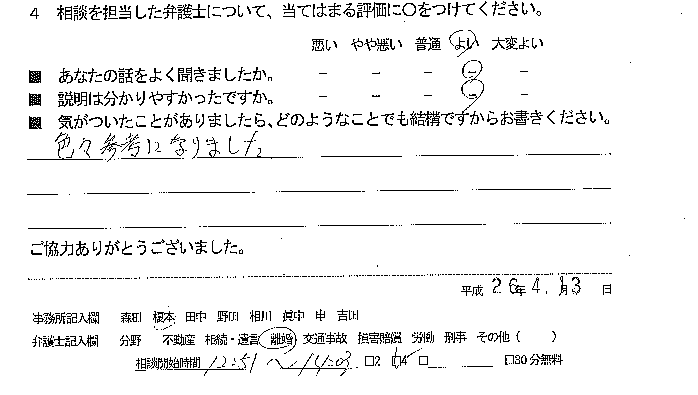 4 相談を担当した弁護士について、当てはまる評価に○をつけてください。
悪い やや悪い 普通 よい 大変よい
■ あなたの話をよく聞きましたか。 － － － － －
■ 説明は分かりやすかったですか。 － － － － －
■ 気がついたことがありましたら、どのようなことでも結構ですからお書きください。
色々参考になりました。
ご協力ありがとうございました。
平成 26年 4.月13 日
事務所記入欄 森田 榎本 田中 野田 相川 申 吉田
弁護士記入欄 分野 不動産 相続・遺言 離婚 交通事故 損害賠償 労働 刑事 その他（ ）
相談開始時間 12:51 ～ 14:03 □2 □4 □ □30分無料